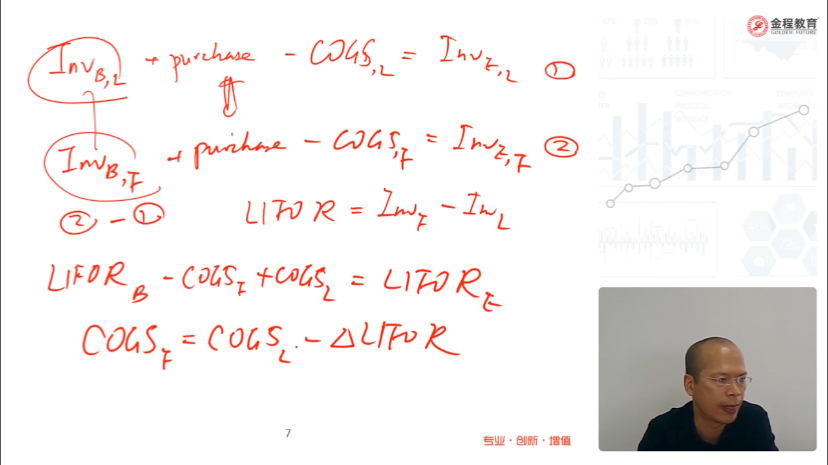 金程教育
GOLDEN FUTURE
Inv_{B,L} + purchase - COGS_{,L} = Inv_{E,L} ①
Inv_{B,F} + purchase - COGS_{,F} = Inv_{E,F} ②
② - ① LIFOR = Inv_F - Inv_L
LIFOR_B - COGS_F + COGS_L = LIFOR_E
COGS_F = COGS_L - △LIFOR
7
专业·创新·增值